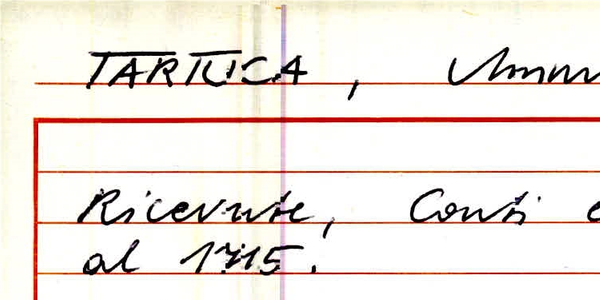 TARTUCA,
Ricevute, Conti e
al 1715.